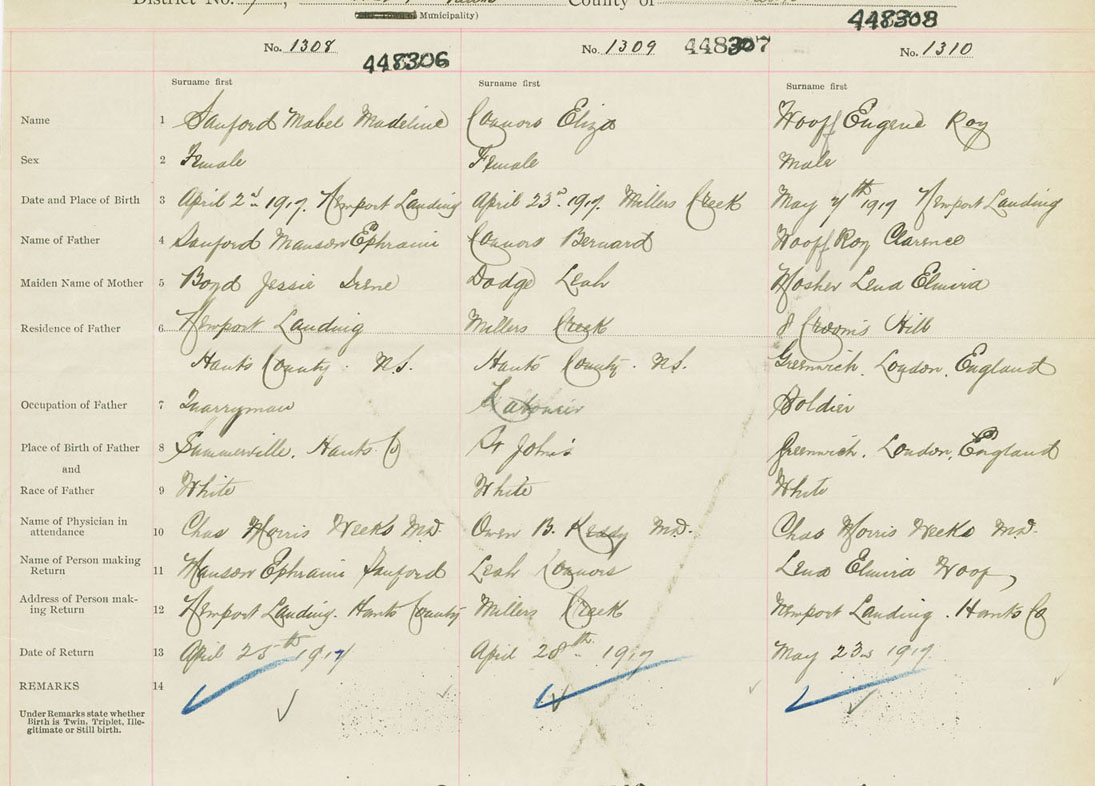 District No. 7, County of
Municipality)
448308
No. 1308 No. 1309 448307 No. 1310
448306
Surname first Surname first Surname first
Name 1 Sanford Mabel Madeline Connors Eliza Wooff Eugene Roy
Sex 2 Female Female Male
Date and Place of Birth 3 April 2nd 1917. Newport Landing April 23rd 1917. Millers Creek May 7th 1917 Newport Landing
Name of Father 4 Sanford Manson Ephraim Connors Bernard Wooff Roy Clarence
Maiden Name of Mother 5 Boyd Jessie Irene Dodge Leah Mosher Lena Elmira
Residence of Father 6 Newport Landing Millers Creek 8 Crooms Hill
Hants County. N.S. Hants County. N.S. Greenwich. London, England
Occupation of Father 7 Quarryman Labourer Soldier
Place of Birth of Father 8 Summerville, Hants Co St John's Greenwich. London, England
and
Race of Father 9 White White White
Name of Physician in
attendance 10 Chas Morris Weeks M.D. Owen B. Keddy M.D. Chas Morris Weeks M.D.
Name of Person making
Return 11 Manson Ephraim Sanford Leah Connors Lena Elmira Wooff
Address of Person mak-
ing Return 12 Newport Landing. Hants County Millers Creek Newport Landing. Hants Co
Date of Return 13 April 25th 1917 April 28th 1917 May 23rd 1917
REMARKS 14
Under Remarks state whether
Birth is Twin, Triplet, Ille-
gitimate or Still birth.